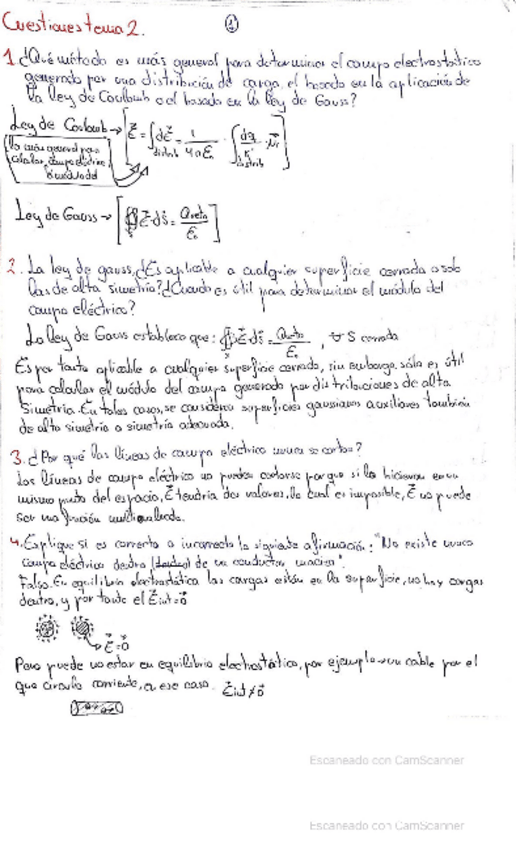 Cuestiones tema 2. ①
1. ¿Qué método es más general para determinar el campo electrostático
generado por una distribución de carga, el basado en la aplicación de
la ley de Coulomb o el basado en la ley de Gauss?
Ley de Coulomb → [ E⃗ = ∫distrib dE⃗ = 1/4πε₀ · ∫distrib dq/r² · u⃗r ]
la más general para
calcular campo eléctrico,
Ley de Gauss → [ ∯ E⃗·ds⃗ = Qneta/ε₀ ]
2. La ley de gauss, ¿Es aplicable a cualquier superficie cerrada o solo
las de alta simetría? ¿Cuándo es útil para determinar el módulo del
campo eléctrico?
La ley de Gauss establece que: ∯s E⃗·ds⃗ = Qneta/ε₀ , ∀ S cerrada
Es por tanto aplicable a cualquier superficie cerrada, sin embargo, sólo es útil
para calcular el módulo del campo generado por distribuciones de alta
simetría. En tales casos, se consideran superficies gaussianas auxiliares también
de alta simetría o simetría adecuada.
3. ¿Por qué las líneas de campo eléctrico nunca se cortan?
Las líneas de campo eléctrico no pueden cortarse porque si lo hicieran en un
mismo punto del espacio, E⃗ tendría dos valores, lo cual es imposible, E⃗ no puede
ser una función multivaluada.
4. Explique si es correcta o incorrecta la siguiente afirmación: "No existe nunca
campo eléctrico dentro de un conductor macizo".
Falso. En equilibrio electrostático las cargas están en la superficie, no hay cargas
dentro, y por tanto el E⃗int=0⃗
E⃗=0⃗
Pero puede no estar en equilibrio electrostático, por ejemplo → un cable por el
que circula corriente, en ese caso. E⃗int≠0⃗
Escaneado con CamScanner
Escaneado con CamScanner